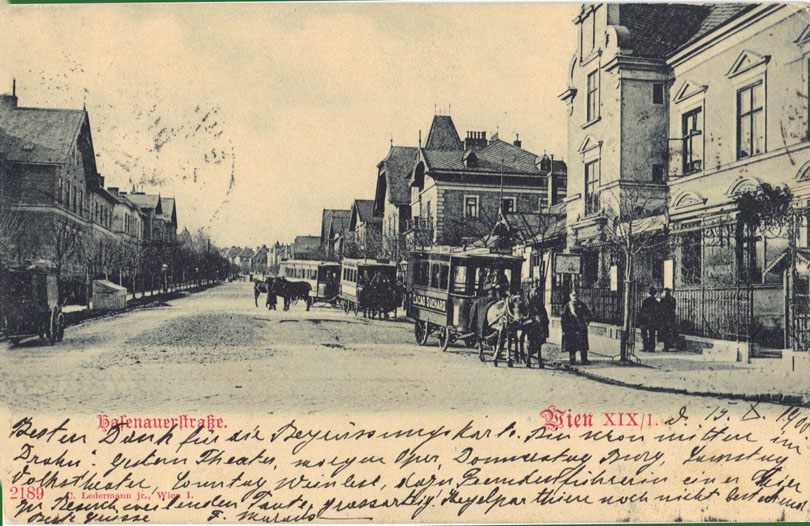 CACAO SUCHARD
Hasenauerstraße.
Wien XIX/1. d. 15. X. 1900
Besten Dank für die Begrüssungskarte. Bin schon mitten im
"Drahn". Gestern Theater, morgen Oper, Donnerstag Burg, Samstag
Volkstheater, Sonntag Weinlese, dazu Fremdenführerin einer hier
zu Besuch weilenden Tante, grossartig! Kegelparthiere noch nicht
Beste Grüsse
2189 C. Ledermann jr., Wien I.